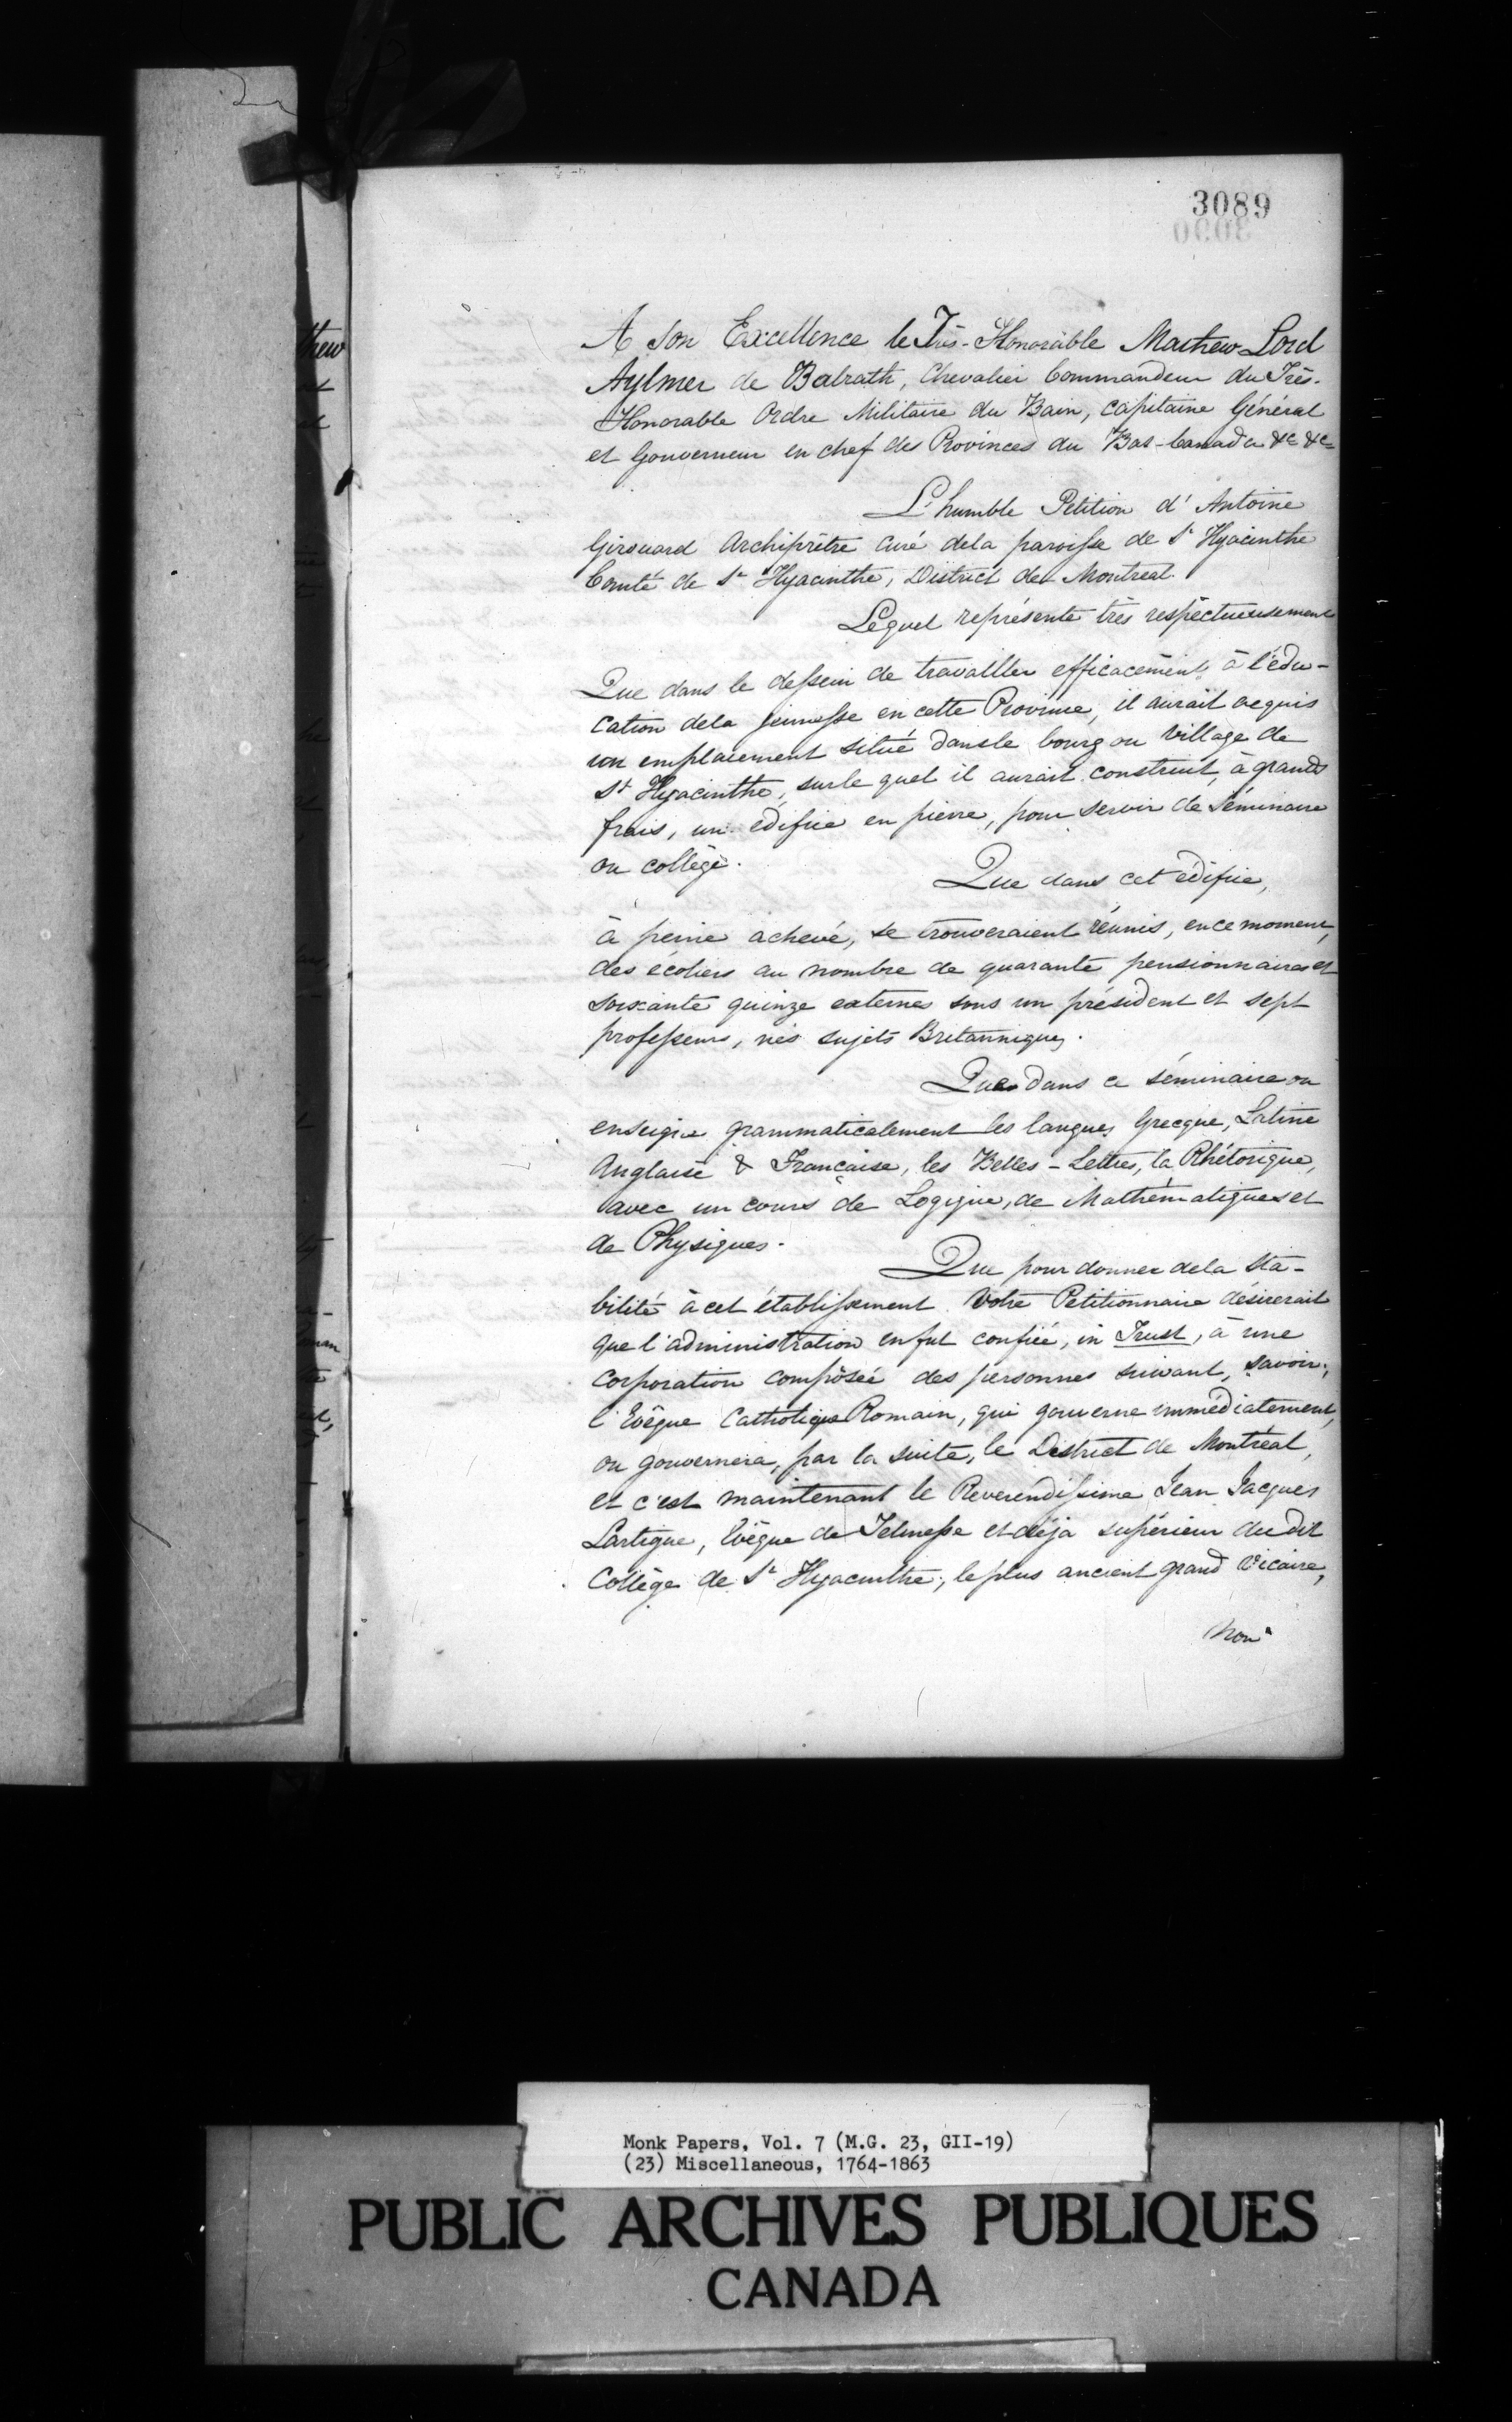 3089
A Son Excellence le Très-Honorable Mathew Lord
Aylmer de Balrath, Chevalier Commandeur du Très-
Honorable Ordre Militaire du Bain, Capitaine Général
et Gouverneur en chef des Provinces du Bas-Canada &c &c
L'humble Petition d'Antoine
Girouard Archiprêtre curé dela paroisse de St Hyacinthe
Comté de St Hyacinthe, District de Montreal.
Lequel représente très respectueusement
Que dans le dessein de travailller efficacement à l'édu-
cation dela jeunesse en cette Province, il aurait acquis
un emplacement situé dansle bourg ou village de
St Hyacinthe, surle quel il aurait construit, à grands
frais, un édifice en pierre, pour servir de Séminaire
ou collège.
Que dans cet édifice,
à peine achevé, se trouveraient réunis, ence moment,
des écoliers au nombre de quarante pensionnaires et
soixante quinze externes sous un président et sept
professeurs, nés sujets Britanniques.
Que dans ce séminaire on
enseigne grammaticalement les langues Grecque, Latine
Anglaise & Française, les Belles-Lettres, la Rhétorique,
avec un cours de Logique, de Mathématiques et
de Physiques.
Que pour donner dela sta-
bilité à cet établissement Votre Petitionnaire désirerait
que l'administration enfut confiée, in Trust, à une
Corporation composée des personnes suivant, savoir;
l'Evêque Catholique Romain, qui gouverne immédiatement,
ou gouvernera, par la suite, le District de Montréal,
et c'est maintenant le Reverendissime Jean Jacques
Lartigue, Evêque de Telmesse et déja supérieur du dit
Collège de St Hyacinthe; le plus ancient grand Vicaire,
Monk Papers, Vol. 7 (M.G. 23, GII-19)
(23) Miscellaneous, 1764-1863
PUBLIC ARCHIVES PUBLIQUES
CANADA